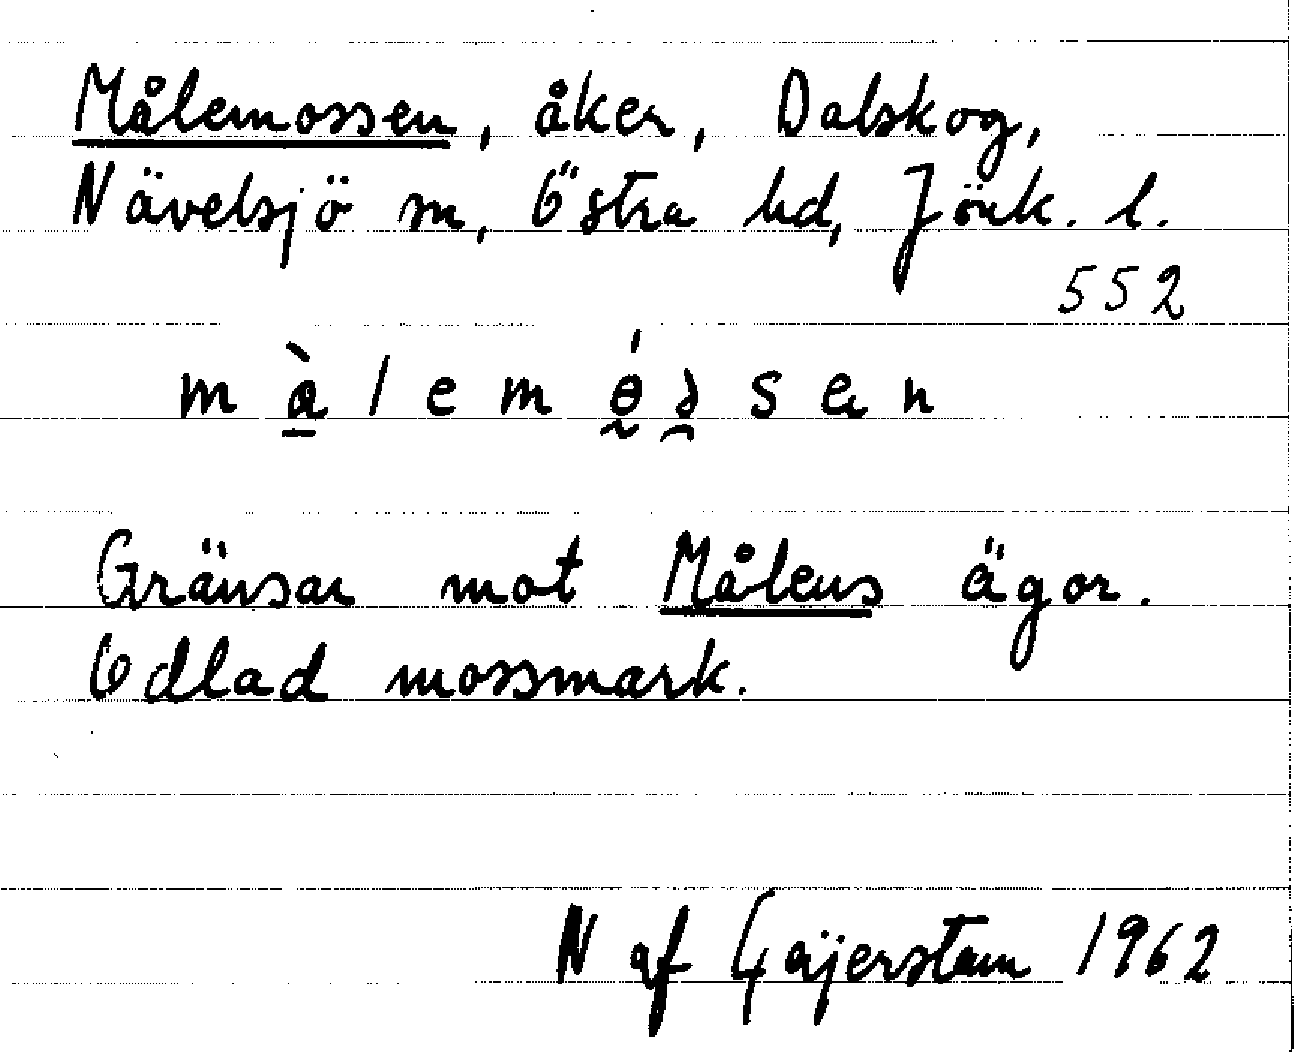 Målemossen, åker, Dalskog,
Nävelsjö sn, Östra hd, Jönk. l.
552
Gränsar mot Målens ägor.
Odlad mossmark.
N af Geijerstam 1962